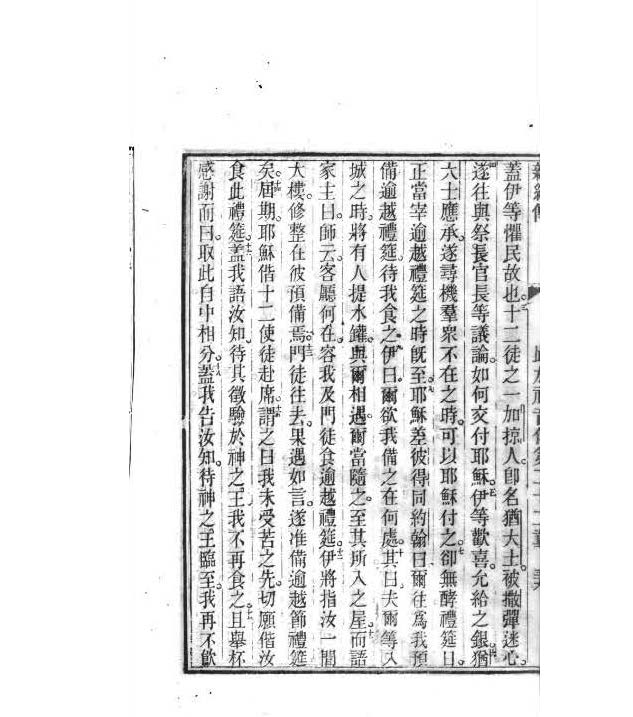 蓋伊等懼民故也。三十二徒之一加掠人卽名猶大士被撒彈迷心。
遂往與祭長官長等議論。如何交付耶穌。五伊等歡喜。允給之銀。六猶
大士應承。遂尋機羣眾不在之時。可以耶穌付之。七卻無酵禮筵日。
正當宰逾越禮筵之時旣至。八耶穌差彼得同約翰曰爾往爲我預
備逾越禮筵。待我食之。九伊曰。爾欲我備之在何處。十其曰。夫爾等入
城之時。將有人提水罐。與爾相遇。爾當隨之。至其所入之屋。十一而語
家主曰。師云。客廳何在。容我及門徒食逾越禮筵。十二伊將指汝一間
大樓。修整在彼預備焉。十三門徒往去。果遇如言。遂准備逾越節禮筵
矣。十四屆期。耶穌偕十二使徒赴席。十五謂之曰我未受苦之先。切願偕汝
食此禮筵。十六蓋我語汝知。待其徵驗於神之王我不再食之。十七且舉杯
感謝而曰。取此自中相分。十八蓋我告汝知。待神之王臨至。我再不飲